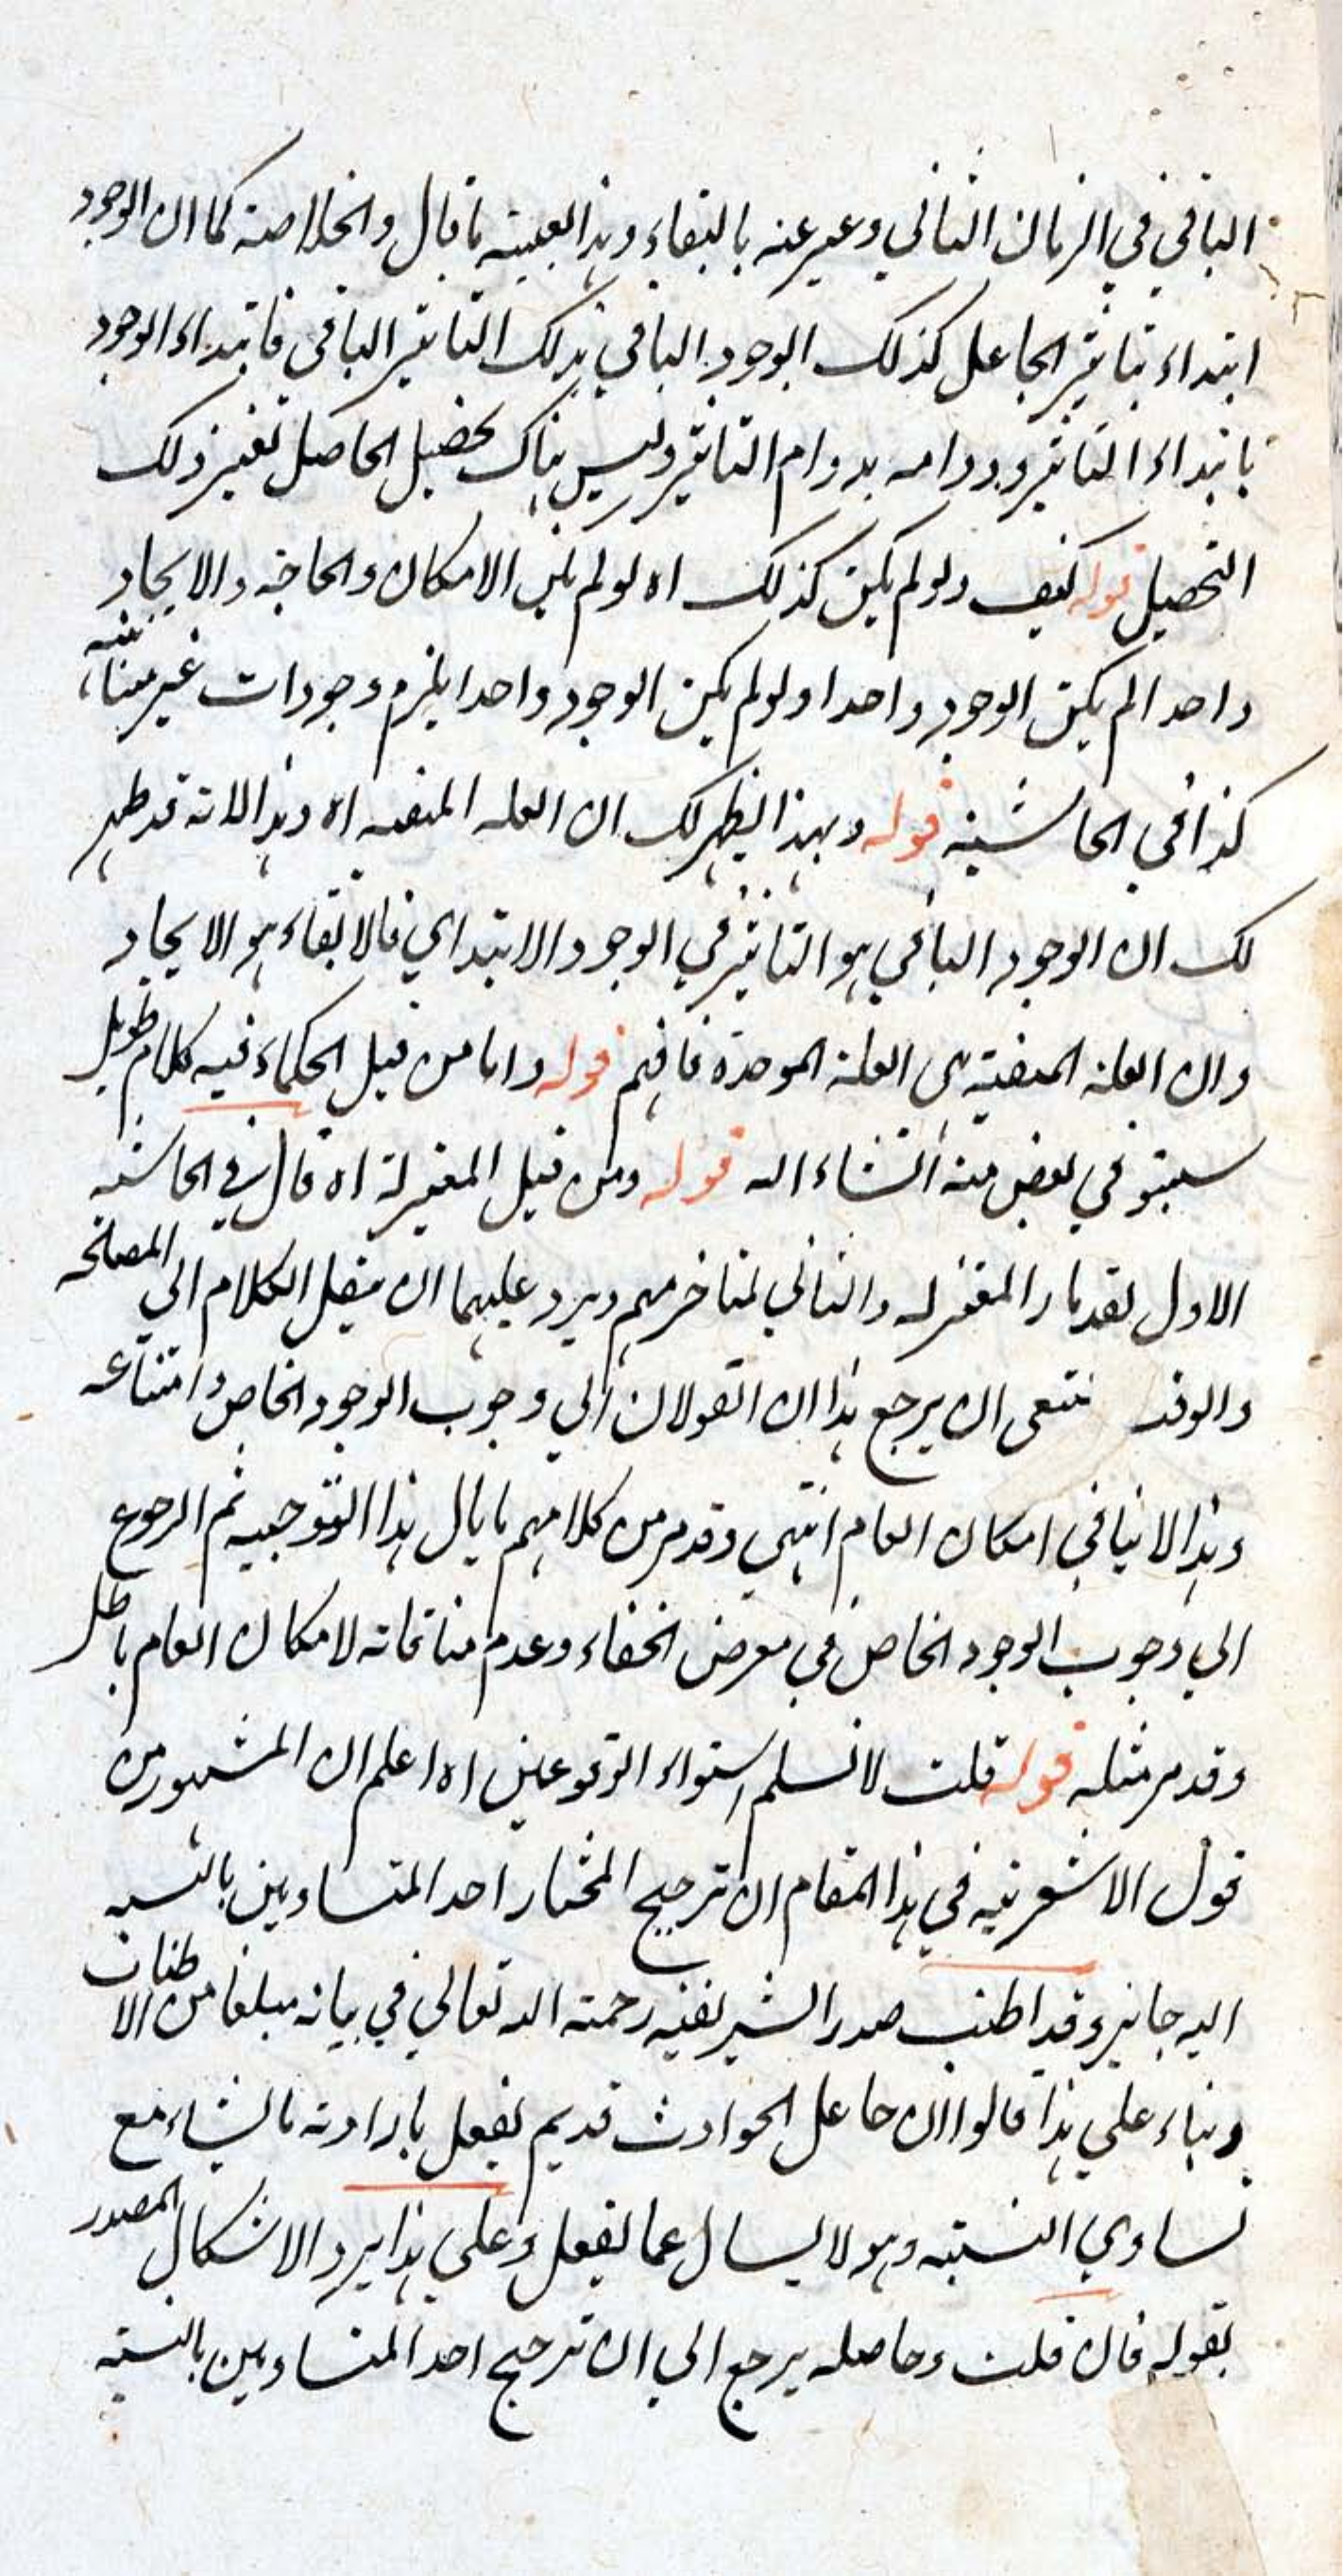 الباقي في الزمان الثاني وعبر عنه بالبقاء وهذا بعينه ما قال والخلاصة كما ان الوجود
ابتداء بتاثير الجاعل كذلك الوجود الباقي بذلك التاثير الباقي فابتداء الوجود
بابتداء التاثير ودوامه بدوام التاثير وليس هناك تحصيل الحاصل بغير ذلك
التحصيل قوله كيف ولو لم يكن كذلك اه لو لم يكن الامكان والحاجة والايجاد
واحدا لم يكن الوجود واحدا ولو لم يكن الوجود واحدا يلزم وجودات غير متناهية
كذا في الحاشية قوله وبهذا يظهر لك ان العلة المبقية اه وهذا لانه قد ظهر
لك ان الوجود الباقي هو التاثير في الوجود الابتداي فالابقاء هو الايجاد
وان العلة المبقية هي العلة الموجدة فافهم قوله واما من قبل الحكماء فيه كلام طويل
سيتو في بعض منه انشاء الله قوله ومن قبل المعتزلة اه قال في الحاشية
الاول لقدماء المعتزلة والثاني لمتاخريهم ويرد عليهما ان ينقل الكلام الى المصلحة
والوقت ان يرجع هذان القولان الي وجوب الوجود الخاص وامتناعه
وهذا لا ينافي امكان العام انتهى وقد مر من كلامهم ما يال هذا التوجيه ثم الرجوع
الي وجوب الوجود الخاص في معرض الخفاء وعدم منافاته لامكان العام باطل
وقد مر مثله قوله قلت لا نسلم استواء الوقوعين اه اعلم ان المشهور من
قول الاشعرية في هذا المقام ان ترجيح المختار احد المتساويين بالنسبة
اليه جايز وقد اطنب صدر الشريفية رحمة الله تعالي في بيانه مبلغا من الاطناب
وبناء علي هذا قالوا ان جاعل الحوادث قديم يفعل بارادته ما يشاء مع
تساوي النسبة وهو لا يسال عما يفعل وعلي هذا يرد الاشكال المصدر
بقوله فان قلت وحاصله يرجع الي ان ترجيح احد المتساويين بالنسبة